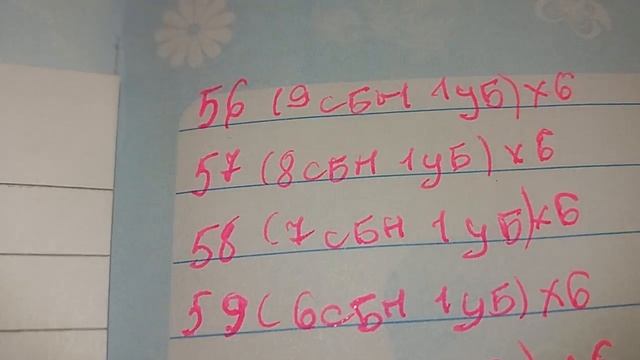 56 (9 сбн 1 уб) х 6
57 (8 сбн 1 уб) х 6
58 (7 сбн 1 уб) х 6
59 (6 сбн 1 уб) х 6